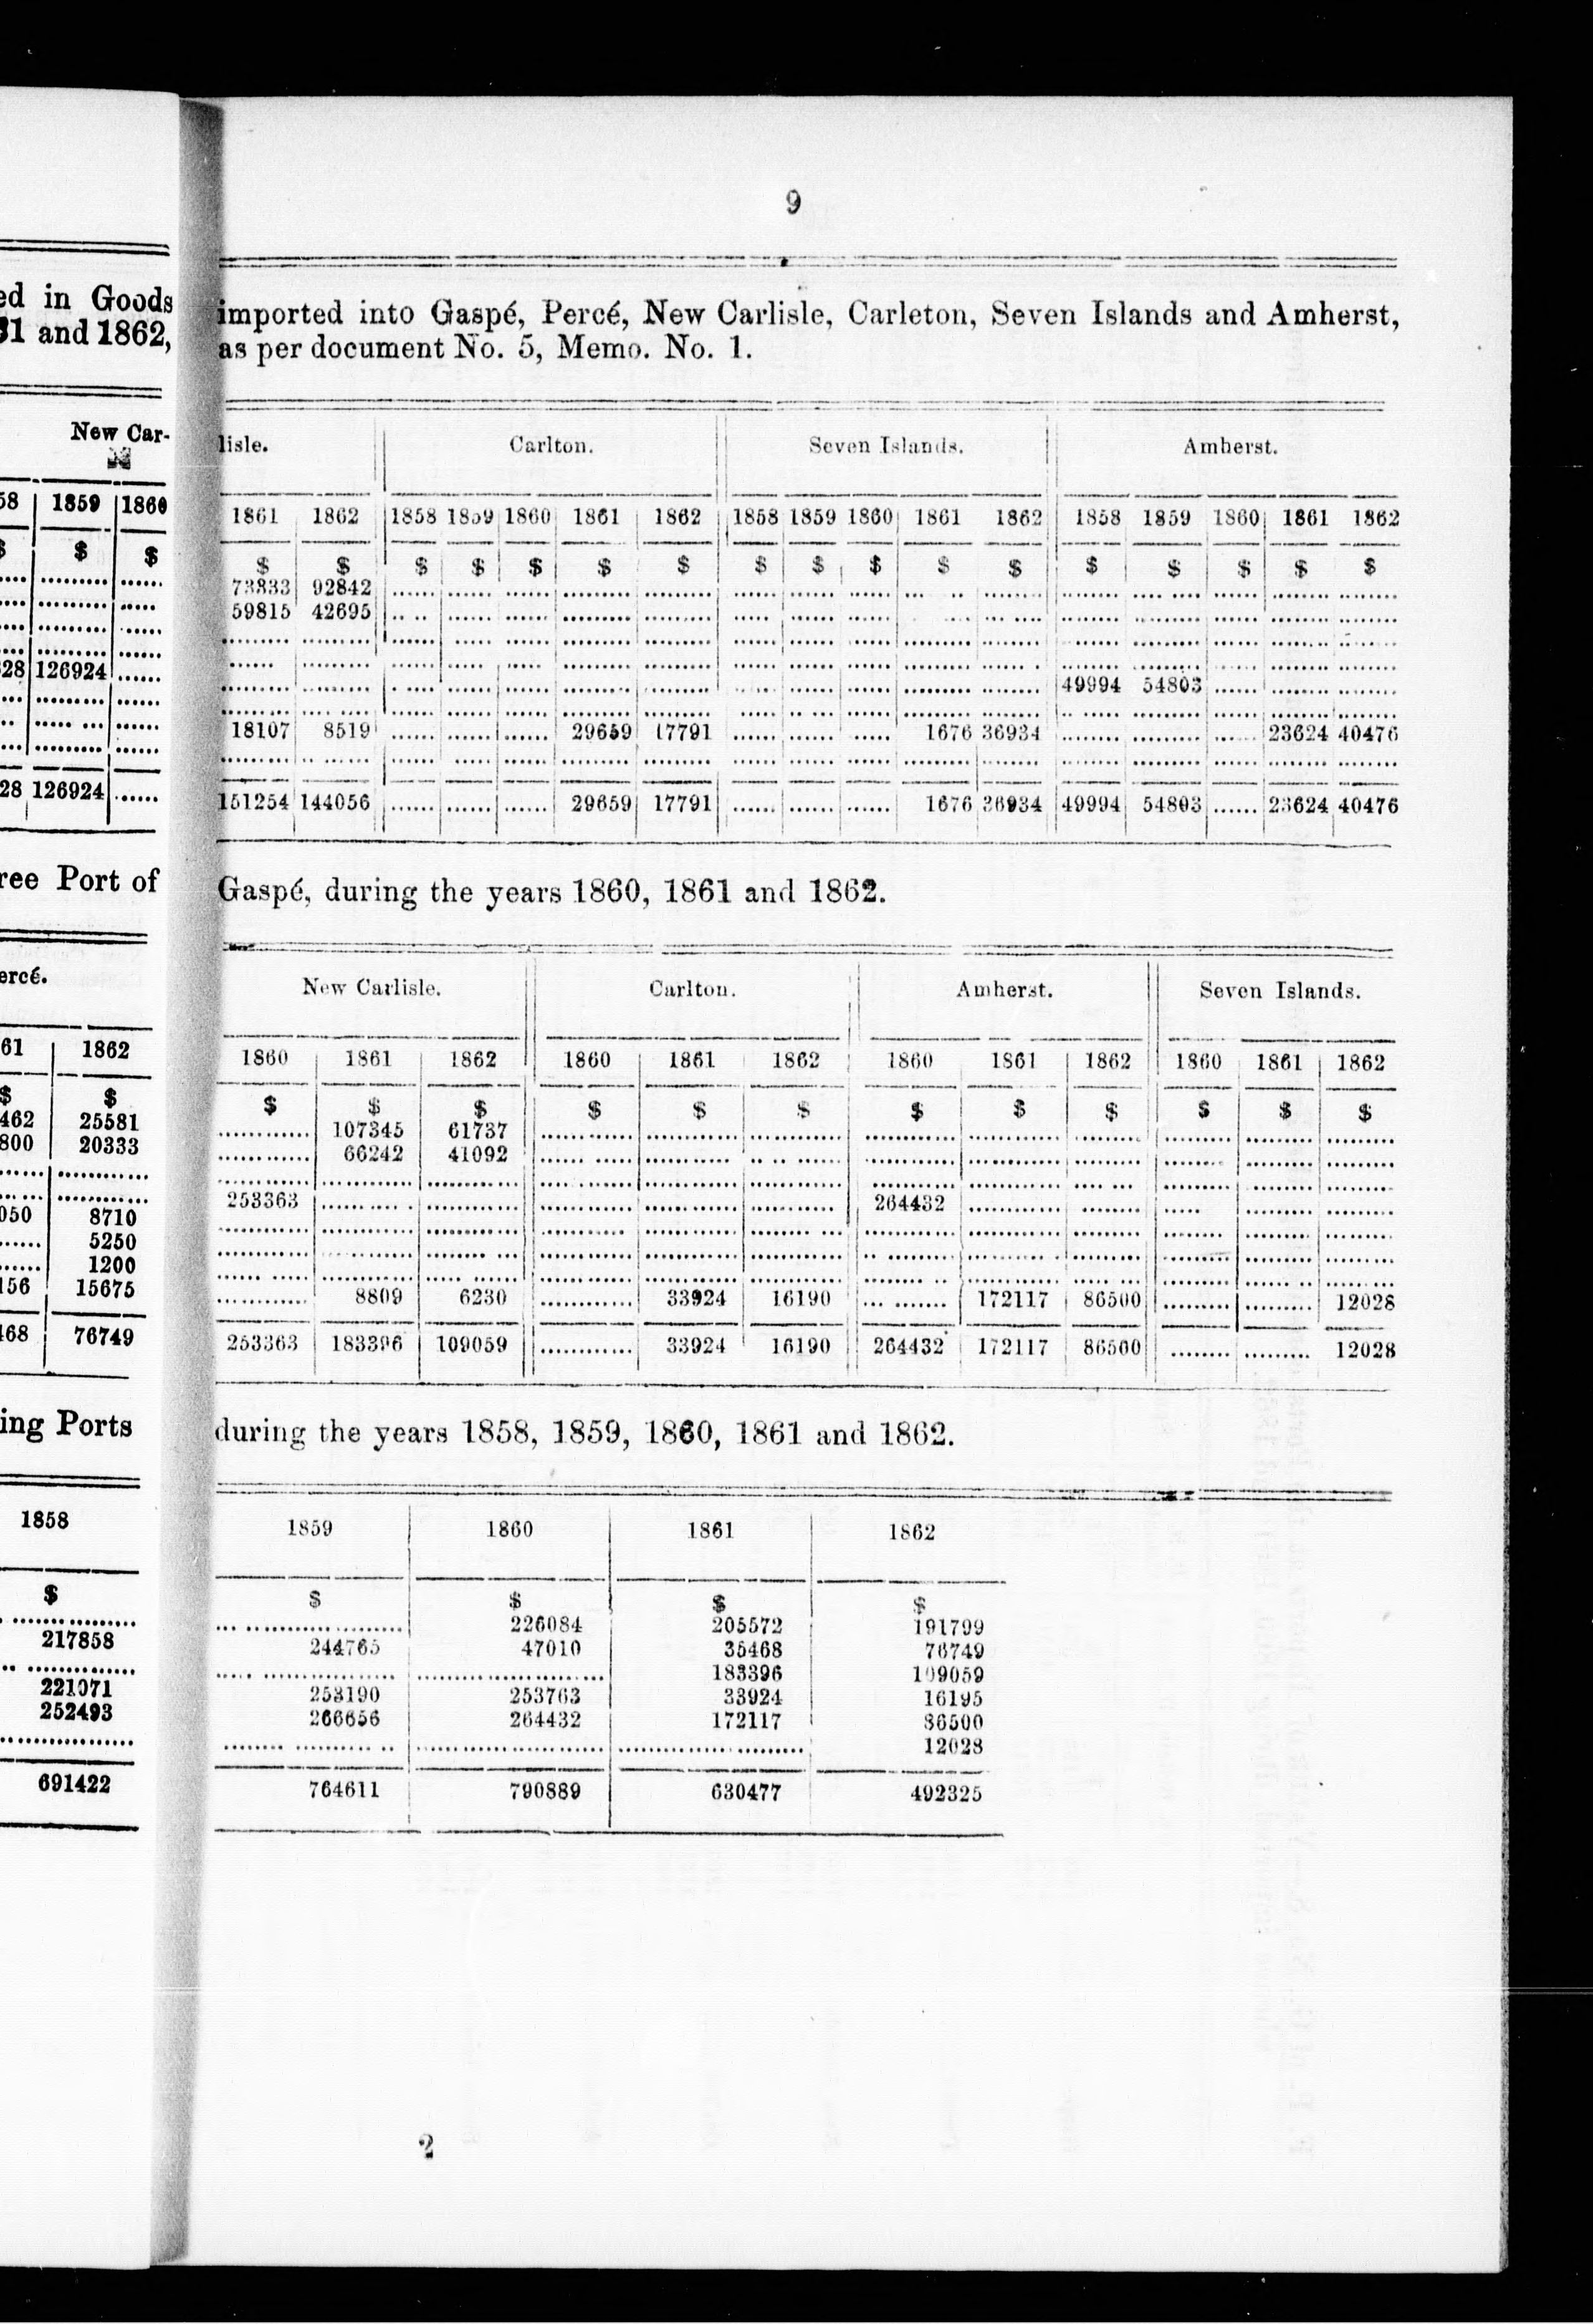 ed in Goods
31 and 1862,
New Car-
58 1859 1860
$ $ $
28 126924
28 126924
ree Port of
ercé.
61 1862
$ $
462 25581
800 20333
050 8710
5250
1200
156 15675
468 76749
ing Ports
1858
$
217858
221071
252493
691422
9
imported into Gaspé, Percé, New Carlisle, Carleton, Seven Islands and Amherst,
as per document No. 5, Memo. No. 1.
lisle. Carlton. Seven Islands. Amherst.
1861 1862 1858 1859 1860 1861 1862 1858 1859 1860 1861 1862 1858 1859 1860 1861 1862
$ $ $ $ $ $ $ $ $ $ $ $ $ $ $ $ $
73833 92842 ...... ...... ...... ......... ......... ...... ...... ...... ......... ........ ........ ......... ...... ........ ........
59815 42695 ...... ...... ...... ......... ......... ...... ...... ...... ......... ........ ........ ......... ...... ........ ........
......... ......... ...... ...... ...... ......... ......... ...... ...... ...... ......... ........ ........ ......... ...... ........ ........
......... ......... ...... ...... ...... ......... ......... ...... ...... ...... ......... ........ ........ ......... ...... ........ ........
......... ......... ...... ...... ...... ......... ......... ...... ...... ...... ......... ........ 49994 54803 ...... ........ ........
......... ......... ...... ...... ...... ......... ......... ...... ...... ...... ......... ........ ........ ......... ...... ........ ........
18107 8519 ...... ...... ...... 29659 17791 ...... ...... ...... 1676 36934 ........ ......... ...... 23624 40476
......... ......... ...... ...... ...... ......... ......... ...... ...... ...... ......... ........ ........ ......... ...... ........ ........
151254 144056 ...... ...... ...... 29659 17791 ...... ...... ...... 1676 36934 49994 54803 ...... 23624 40476
Gaspé, during the years 1860, 1861 and 1862.
New Carlisle. Carlton. Amherst. Seven Islands.
1860 1861 1862 1860 1861 1862 1860 1861 1862 1860 1861 1862
$ $ $ $ $ $ $ $ $ $ $ $
............ 107345 61737 ............ ............ ........... ............ ............ ......... ......... ......... .........
............ 66242 41092 ............ ............ ........... ............ ............ ......... ......... ......... .........
............ ............ ............ ............ ............ ........... ............ ............ ......... ......... ......... .........
253363 ............ ............ ............ ............ ........... 264432 ............ ......... ......... ......... .........
............ ............ ............ ............ ............ ........... ............ ............ ......... ......... ......... .........
............ ............ ............ ............ ............ ........... ............ ............ ......... ......... ......... .........
............ ............ ............ ............ ............ ........... ............ ............ ......... ......... ......... .........
............ 8809 6230 ............ 33924 16190 ............ 172117 86500 ......... ......... 12028
253363 183396 109059 ............ 33924 16190 264432 172117 86500 ......... ......... 12028
during the years 1858, 1859, 1860, 1861 and 1862.
1859 1860 1861 1862
$ $ $ $
........................ 226084 205572 191799
244765 47010 35468 76749
........................ ........................ 183396 109059
253190 253763 33924 16195
266656 264432 172117 86500
........................ ........................ ........................ 12028
764611 790889 630477 492325
2